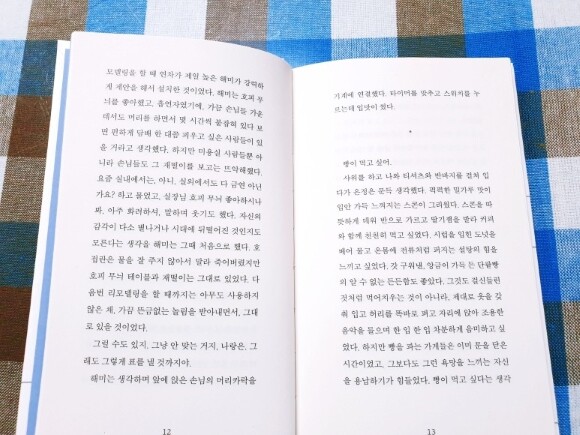 모델링을 할 때 연차가 제일 높은 해미가 강력하
게 제안을 해서 설치한 것이었다. 해미는 호피 무
늬를 좋아했고, 흡연자였기에, 가끔 손님들 가운
데서도 머리를 하면서 몇 시간씩 붙잡혀 있다 보
면 편하게 담배 한 대쯤 피우고 싶은 사람들이 있
을 거라고 생각했다. 하지만 미용실 사람들뿐 아
니라 손님들도 그 재떨이를 보고는 뜨악해했다.
요즘 실내에서는, 아니, 실외에서도 다 금연 아닌
가요? 하고 물었고, 실장님 호피 무늬 좋아하시나
봐, 아주 화려하셔, 말하며 웃기도 했다. 자신의
감각이 다소 별나거나 시대에 뒤떨어진 것인지도
모른다는 생각을 해미는 그때 처음으로 했다. 호
접란은 물을 잘 주지 않아서 말라 죽어버렸지만
호피 무늬 테이블과 재떨이는 그대로 있었다. 다
음번 리모델링을 할 때까지는 아무도 사용하지
않은 채, 가끔 뜬금없는 놀림을 받아내면서, 그대
로 있을 것이었다.
그럴 수도 있지, 그냥 안 맞는 거지, 나랑은, 그
래도 그렇게 표를 낼 것까지야.
해미는 생각하며 앞에 앉은 손님의 머리카락을
12
기계에 연결했다. 타이머를 맞추고 스위치를 누
르는데 입맛이 썼다.
*
빵이 먹고 싶어.
샤워를 하고 나와 티셔츠와 반바지를 걸쳐 입
다가 은정은 문득 생각했다. 퍽퍽한 밀가루 맛이
입안 가득 느껴지는 스콘이 그리웠다. 스콘을 따
뜻하게 데워 반으로 가르고 딸기잼을 발라 커피
와 함께 천천히 먹고 싶었다. 시럽을 입힌 도넛을
베어 물고 온몸에 전류처럼 퍼지는 설탕의 힘을
느끼고 싶었다. 갓 구워낸, 앙금이 가득 든 단팥빵
의 알 수 없는 든든함도 좋았다. 그것도 걸신들린
것처럼 먹어치우는 것이 아니라, 제대로 옷을 갖
춰 입고 허리를 똑바로 펴고 자리에 앉아 조용한
음악을 들으며 한 입 한 입 차분하게 음미하고 싶
었다. 하지만 빵을 파는 가게들은 이미 문을 닫은
시간이었고, 그보다도 그런 욕망을 느끼는 자신
을 용납하기가 힘들었다. 빵이 먹고 싶다는 생각
13